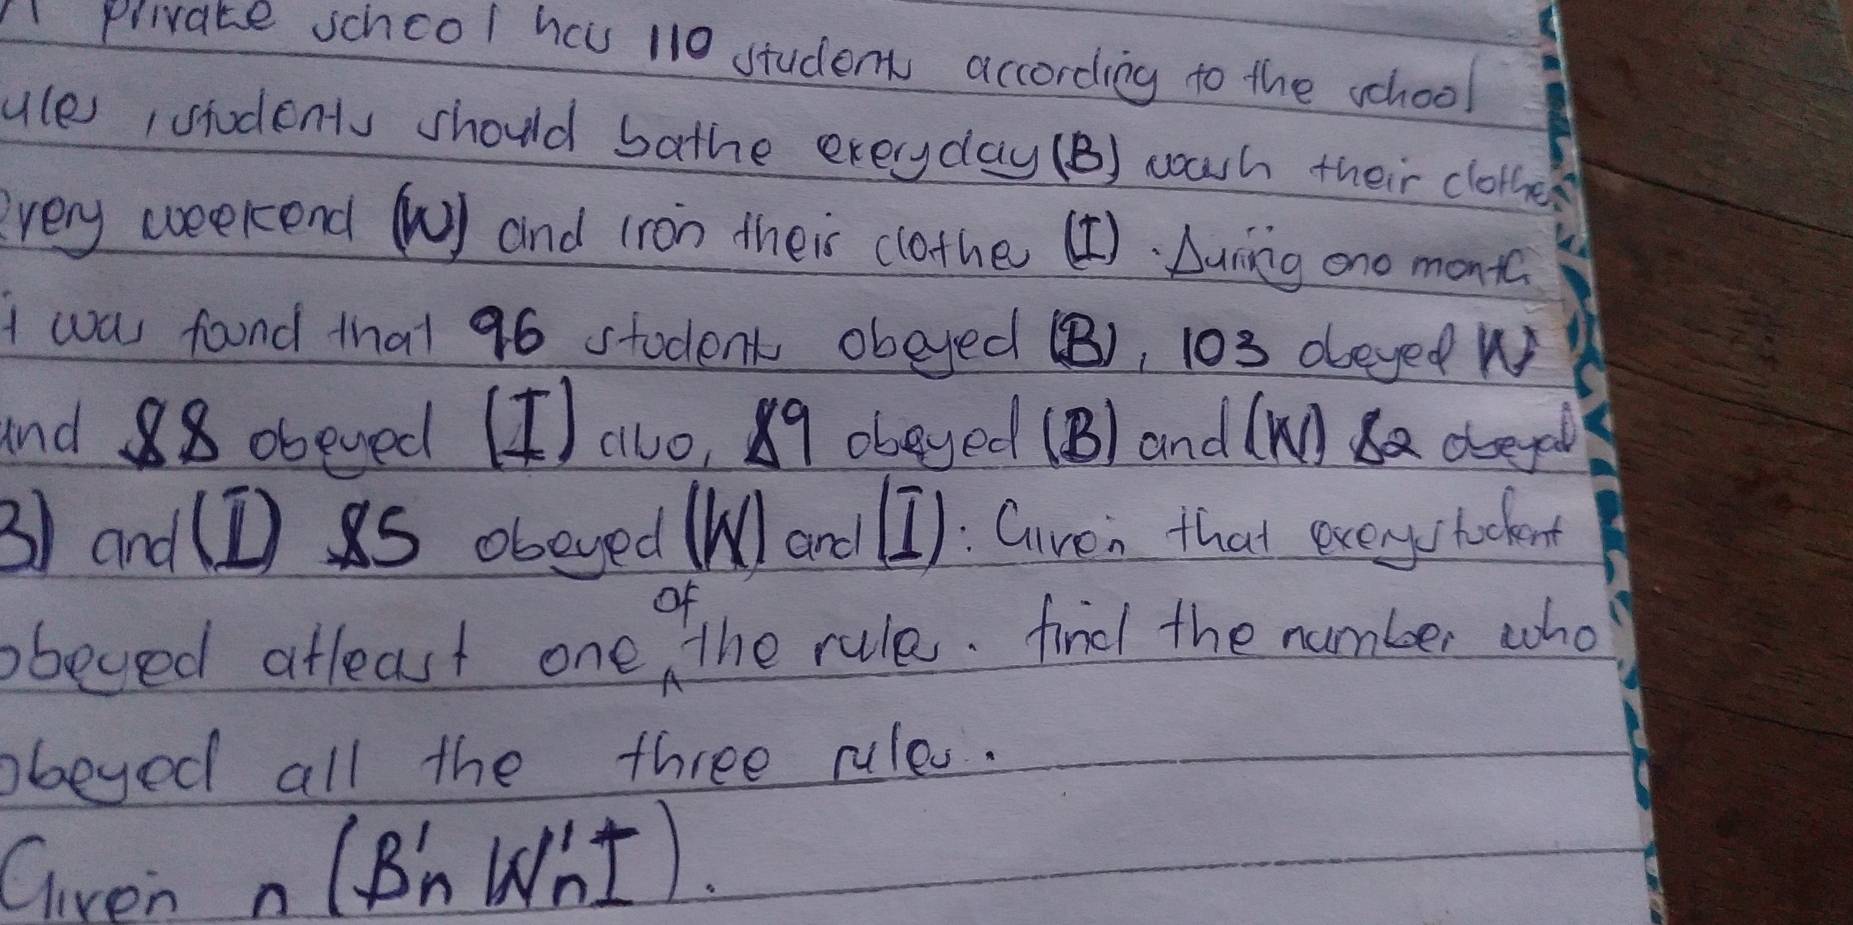 private school has 110 students according to the school
ules, students should bathe everyday (B) wash their clothe
every weekend (W) and iron their clothes (I). During one month
it was found that 96 students obeyed (B), 103 obeyed W
and 88 obeyed (I) also, 89 obeyed (B) and (W) 82 obeyed
B) and (I) 85 obeyed (W) and (I). Given that every student
obeyed atleast one of the rules. find the number who
obeyed all the three rules.
Given n (B'n W'n I).